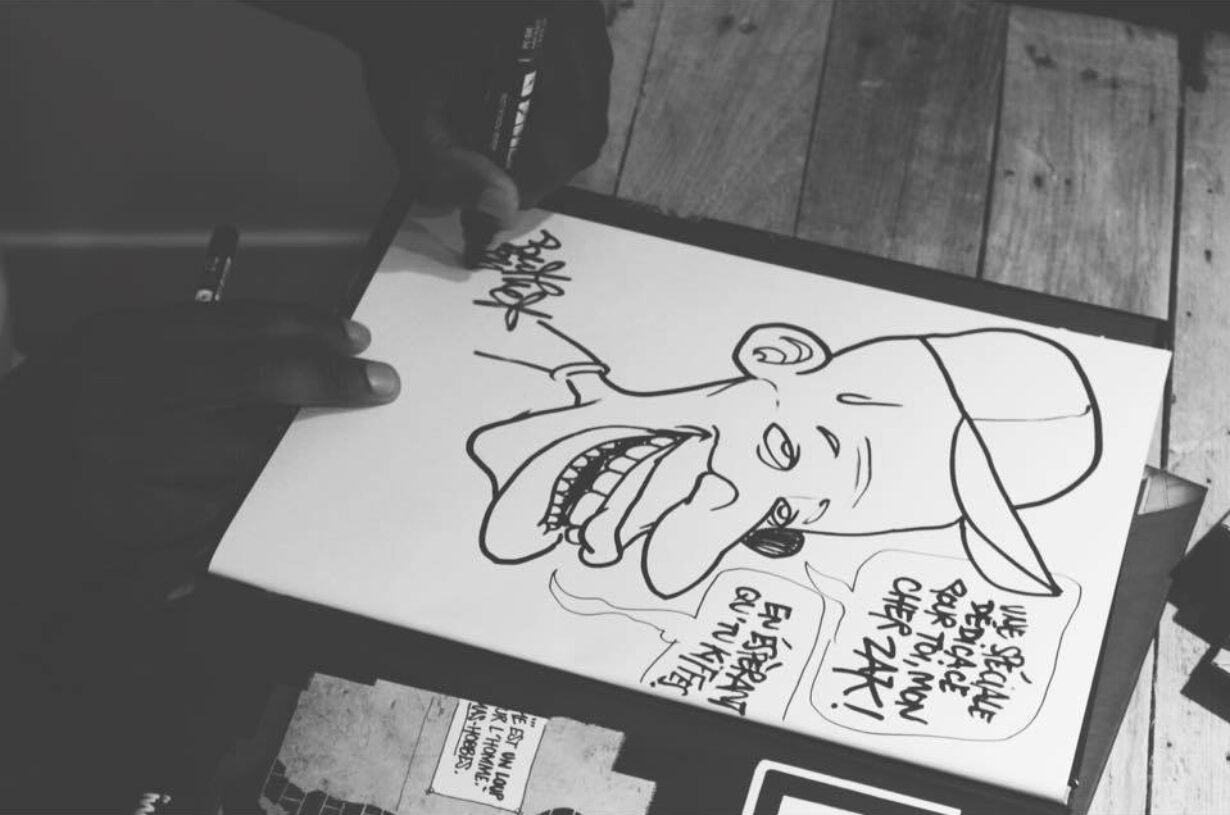 UNE SPÉCIALE
DÉDICACE
POUR TOI, MON
CHER ZAK!
EN ESPÉRANT
QU'TU KIFFES
EST UN LOUP
L'HOMME."
HOBBES.